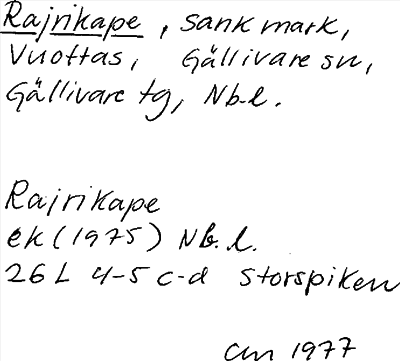 Rajrikape, sank mark,
Vuottas, Gällivare sn,
Gällivare tg, Nb.l.
Rajrikape
ek (1975) Nb.l.
26L 4-5 c-d Storspiken
1977